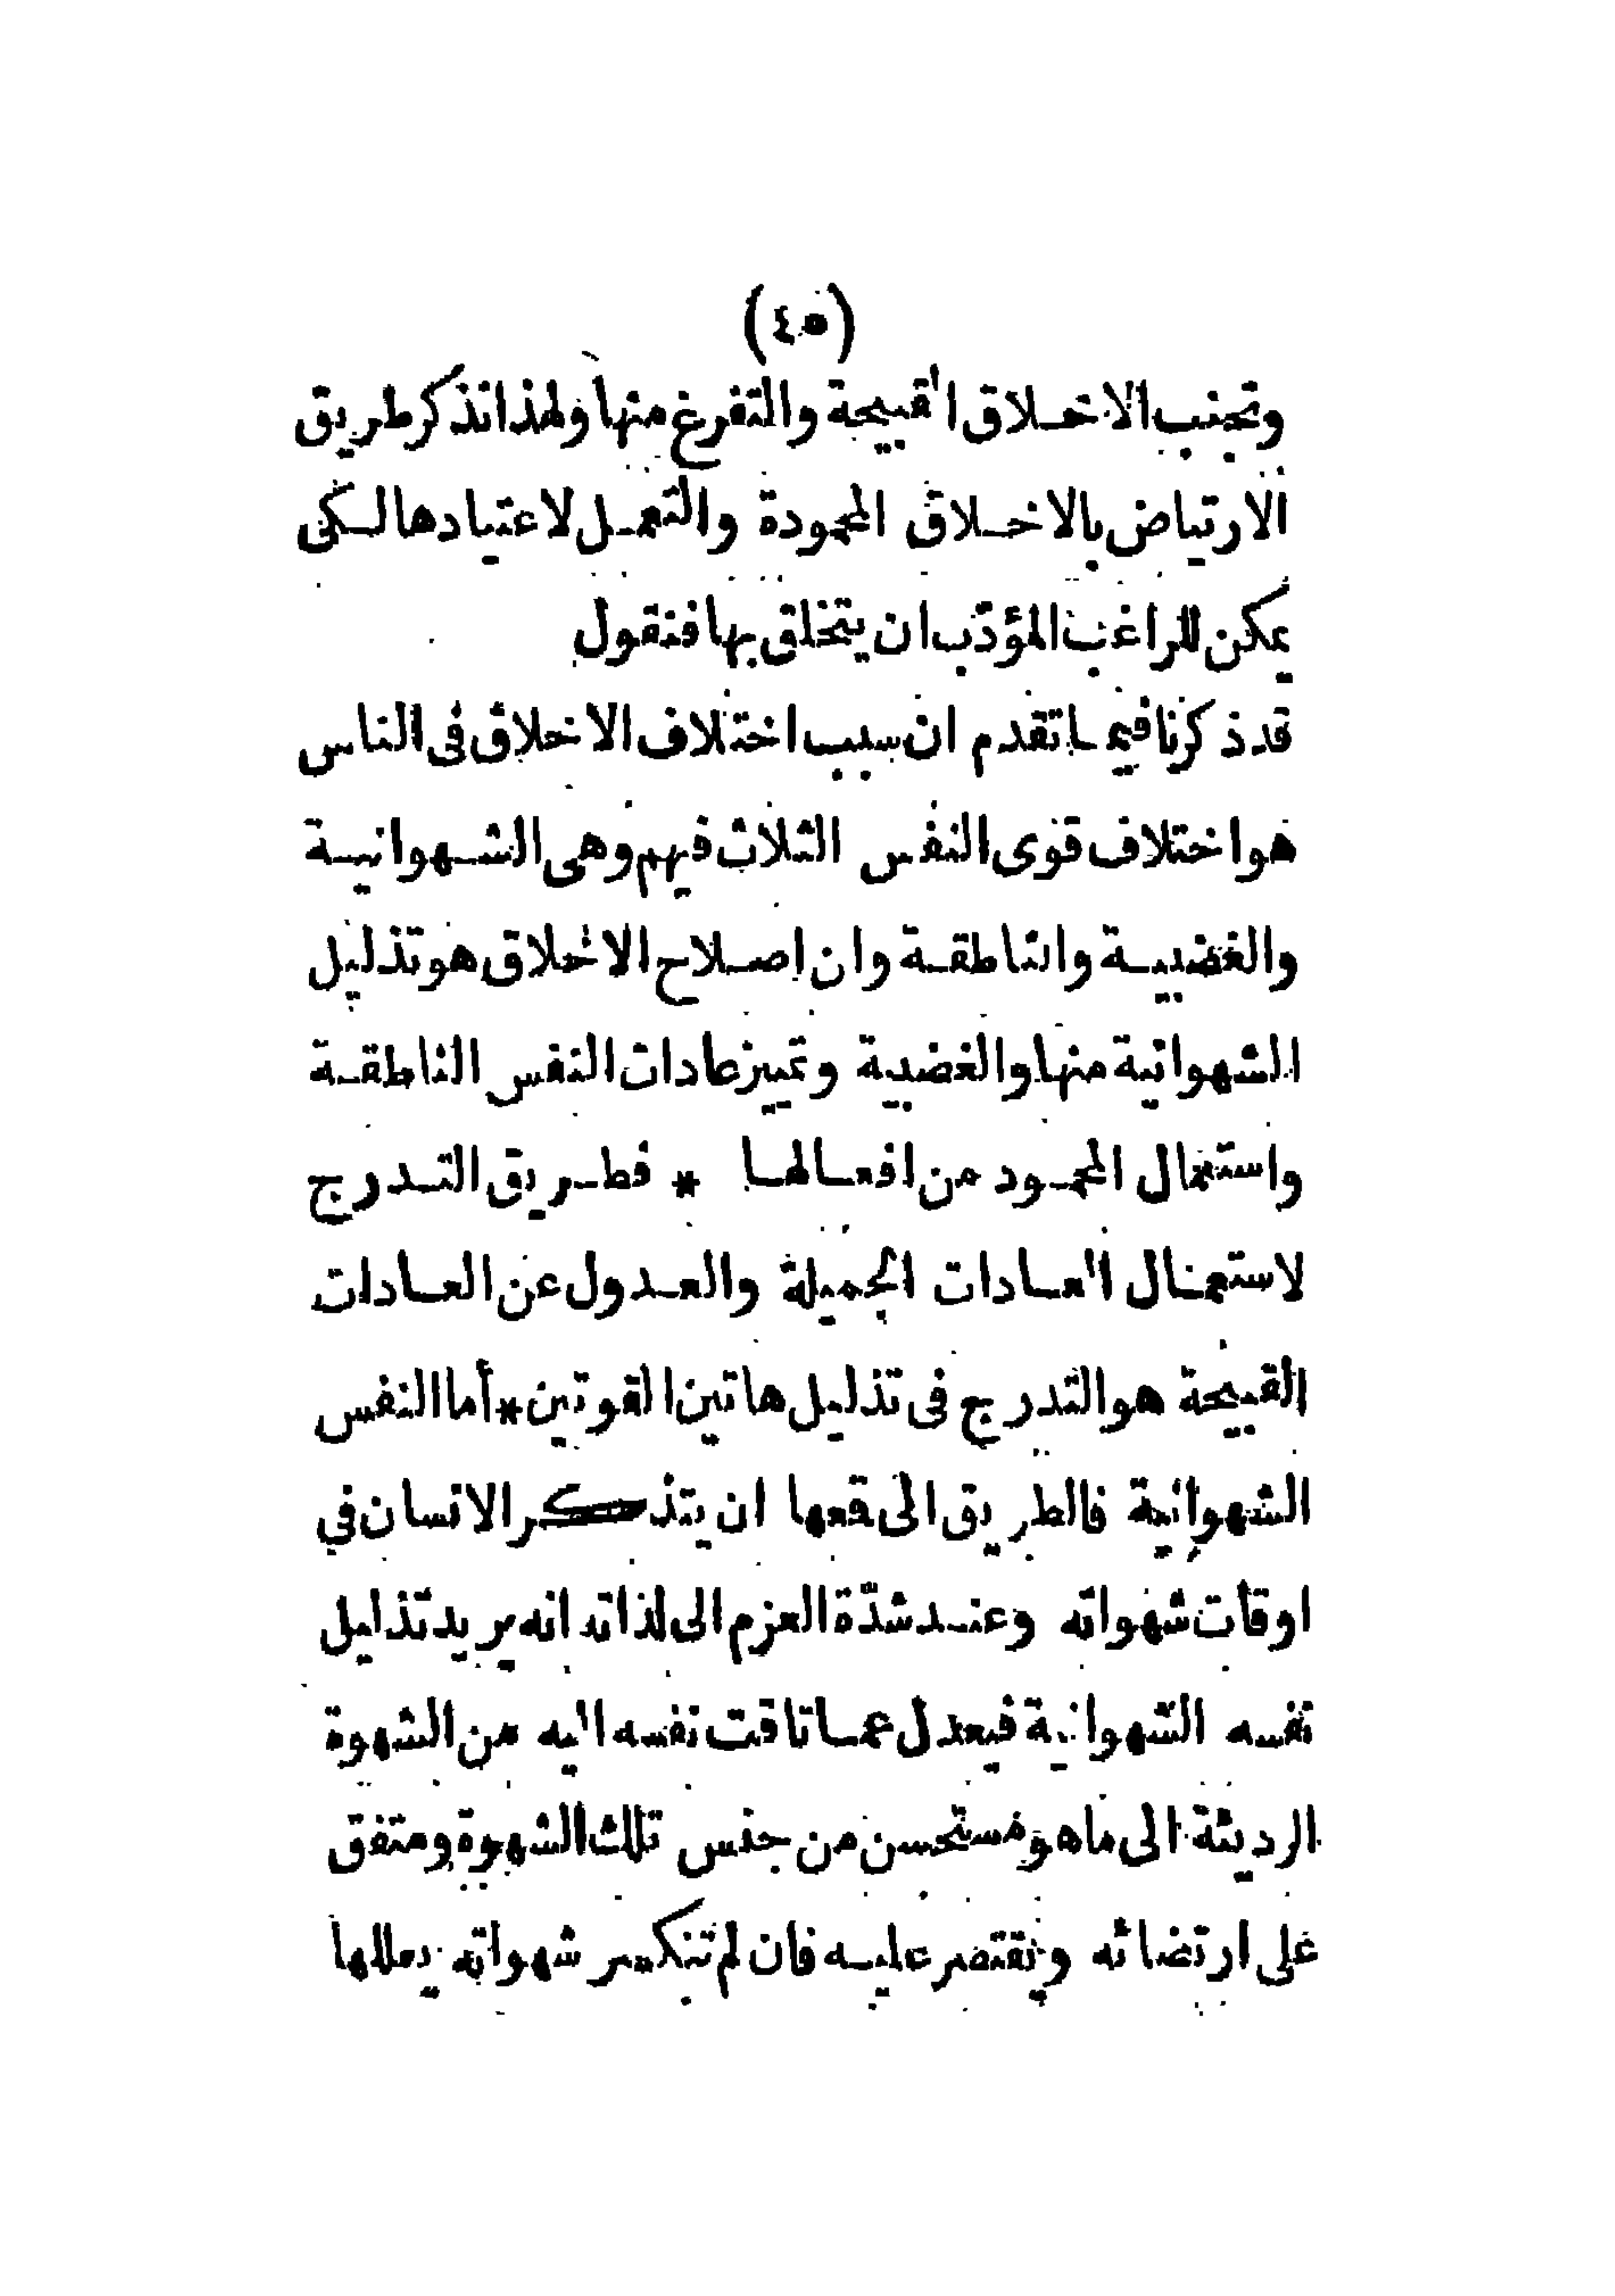 (٤٥)
وتجنب الاخلاق القبيحة والتفرغ منها ولهذا نذكر طريق
الارتياض بالاخلاق المحمودة والتعمل لاعتيادها لكى
يمكن للراغب المؤدّب ان يتخلق بها فنقول
قد ذكرنا فيما تقدم ان سبب اختلاف الاخلاق فى الناس
هو اختلاف قوى النفس الثلاث فيهم وهى الشهوانية
والغضبية والناطقة وان اصلاح الاخلاق هو تذليل
الشهوانية منها والغضبية وتمييز عادات النفس الناطقة
واستعمال المحمود من افعالها * فطريق التدرج
لاستعمال العادات الجميلة والعدول عن العادات
القبيحة هو التدرج فى تذليل هاتين القوتين * أما النفس
الشهوانية فالطريق الى قمعها ان يتذكر الانسان فى
اوقات شهواته وعند شدّة العزم الى لذاته انه يريد تذليل
نفسه الشهوانية فيعدل عما تاقت نفسه اليه من الشهوة
الرديئة الى ما هو مستحسن من جنس تلك الشهوة ومتفق
على ارتضائه ويقتصر عليه فان لم تنكسر شهواته يعللها